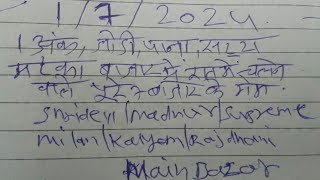 1/7/2024.
1 अंक, जोडी, पाना, सट्टा
मटका बजार में सबसे चलने
वाले बजार के नाम.
Sridevi/madhur/supreme
milan/kalyan/Rajdhani
Main Bazar